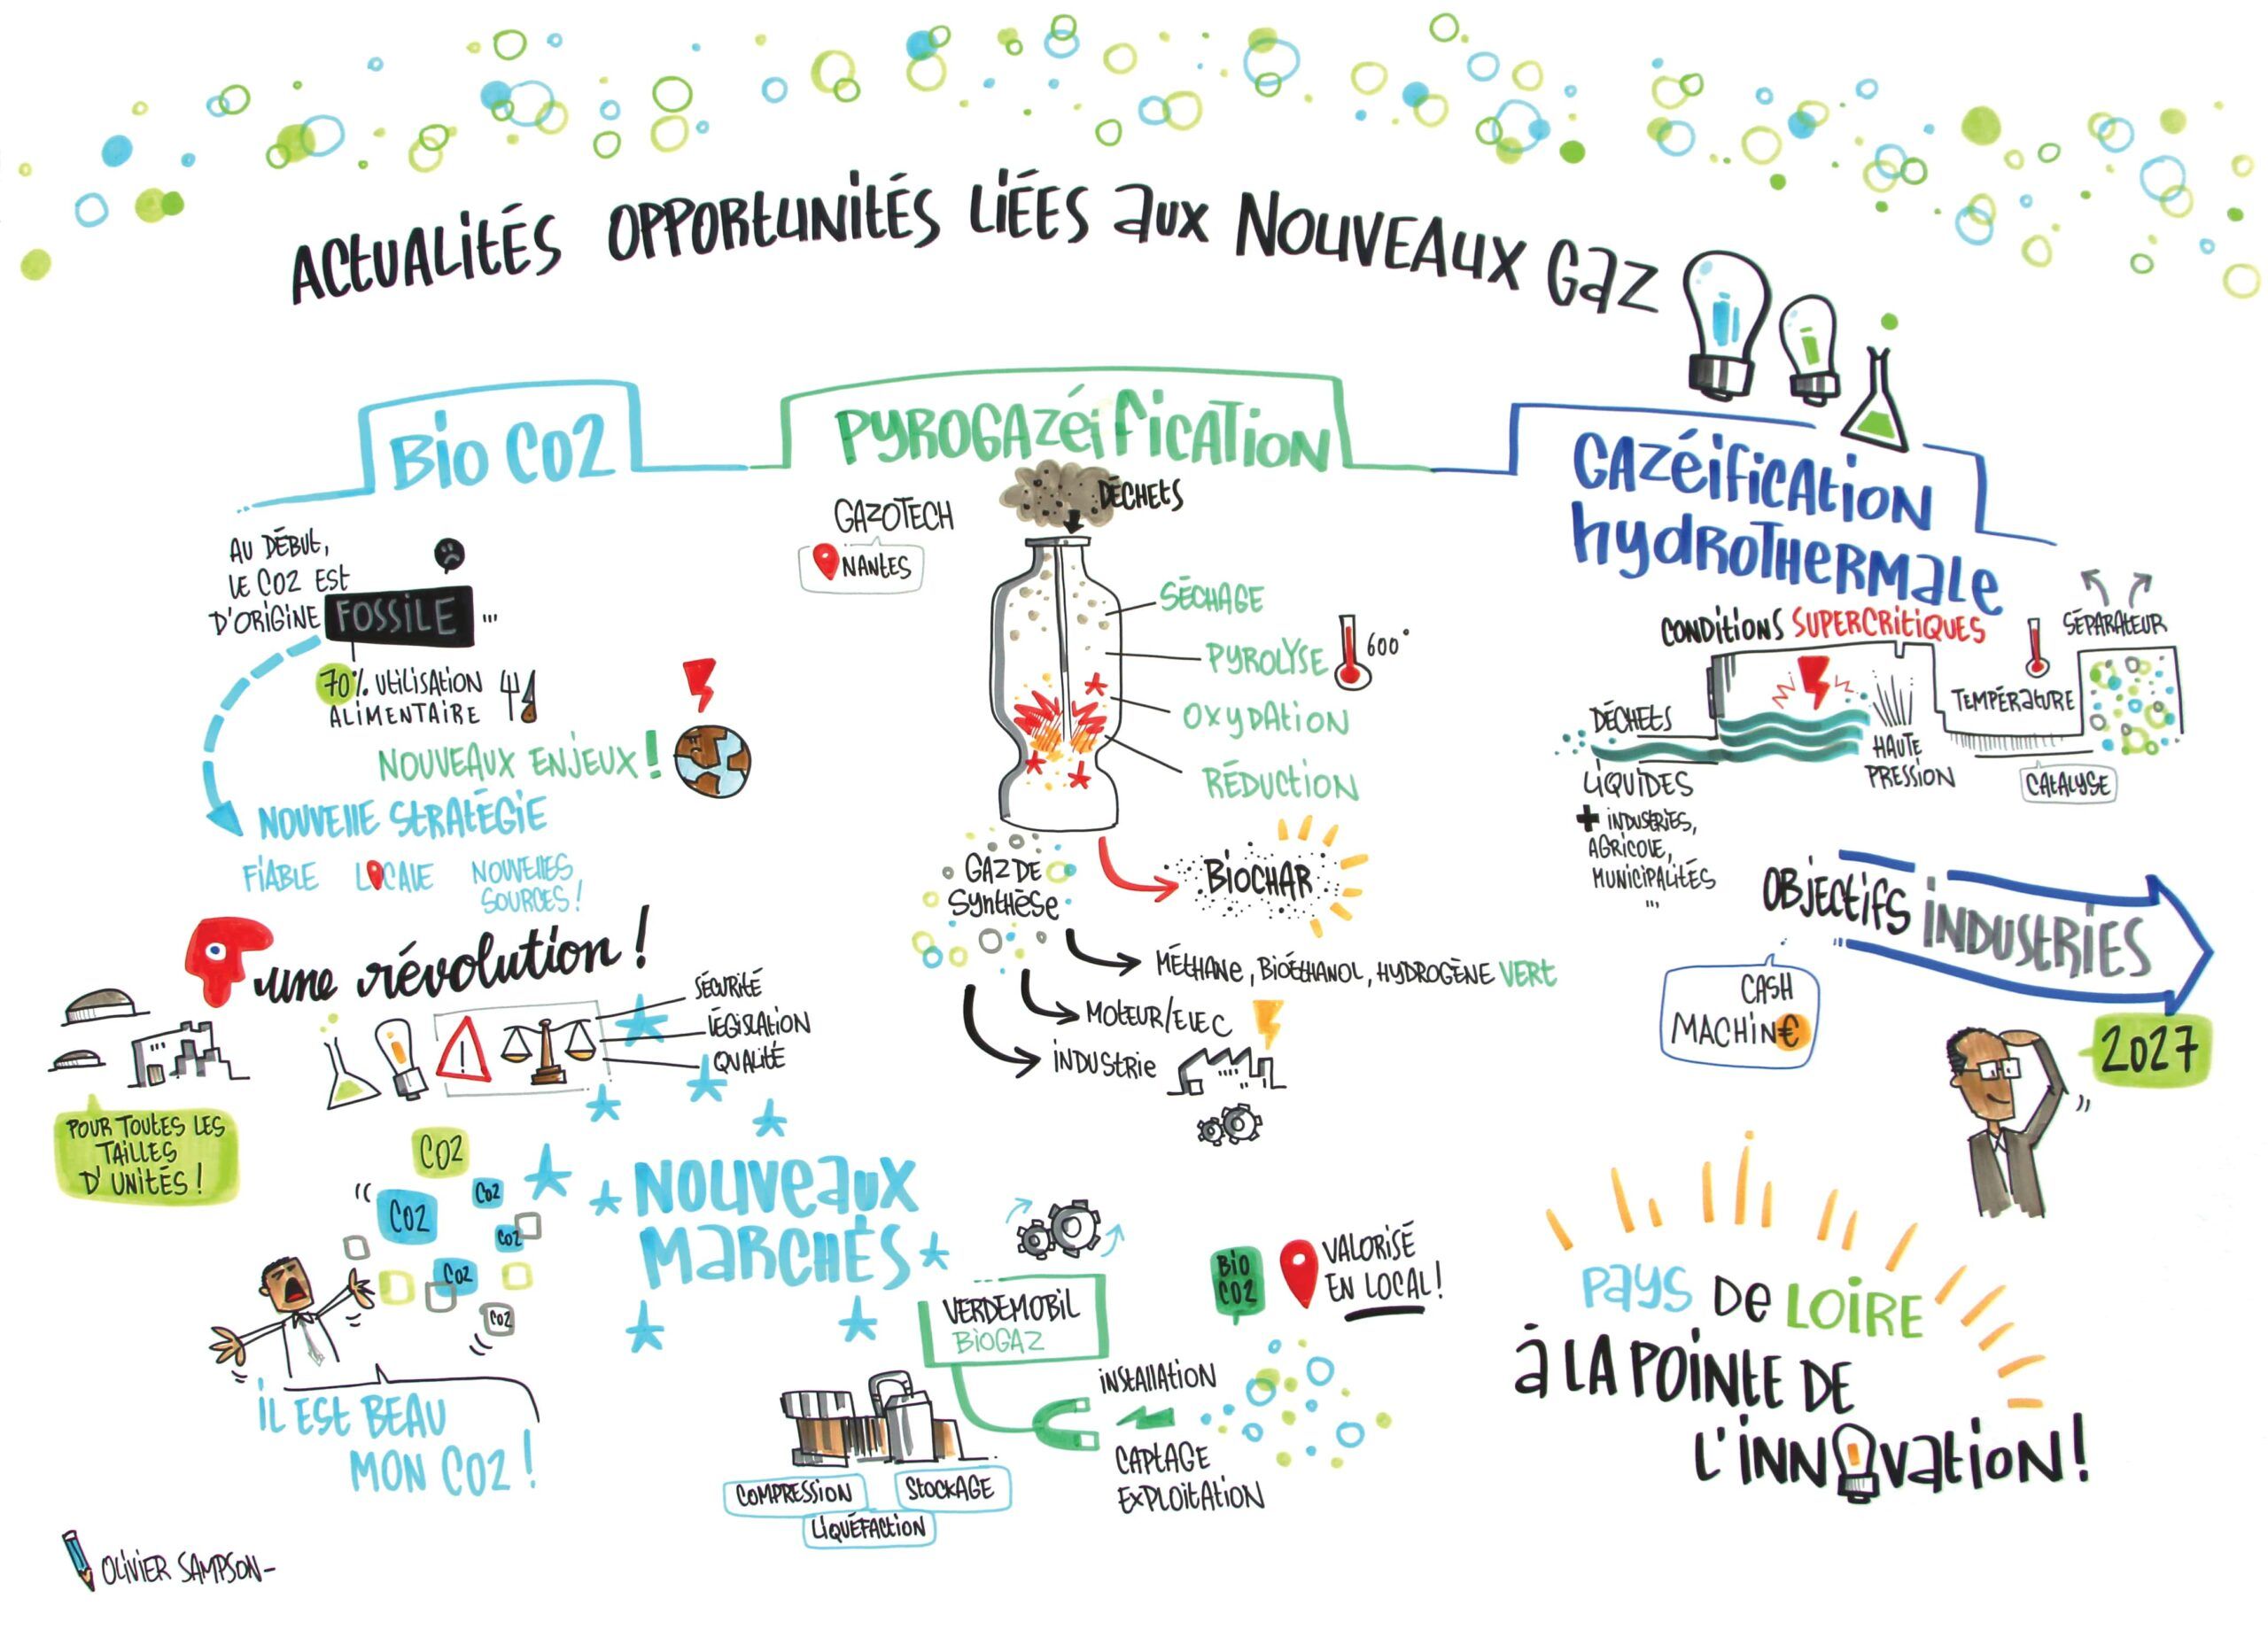 ACTUALITÉS OPPORTUNITÉS LIÉES AUX NOUVEAUX GAZ
BIO CO2
AU DÉBUT,
LE CO2 EST
D'ORIGINE FOSSILE ...
70% UTILISATION
ALIMENTAIRE
NOUVEAUX ENJEUX !
NOUVELLE STRATÉGIE
FIABLE LOCALE NOUVELLES
SOURCES !
une révolution !
SÉCURITÉ
LÉGISLATION
QUALITÉ
POUR TOUTES LES
TAILLES
D'UNITÉS !
CO2
CO2
CO2
CO2
CO2
CO2
IL EST BEAU
MON CO2 !
NOUVEAUX
MARCHÉS
PYROGAZÉIFICATION
GAZOTECH
NANTES
DÉCHETS
SÉCHAGE
PYROLYSE 600°
OXYDATION
RÉDUCTION
GAZ DE
SYNTHÈSE
BIOCHAR
MÉTHANE, BIOÉTHANOL, HYDROGÈNE VERT
MOTEUR/ELEC
INDUSTRIE
VERDEMOBIL
BIOGAZ
BIO
CO2
VALORISÉ
EN LOCAL !
INSTALLATION
CAPTAGE
EXPLOITATION
COMPRESSION
STOCKAGE
LIQUÉFACTION
GAZÉIFICATION
HYDROTHERMALE
CONDITIONS SUPERCRITIQUES
SÉPARATEUR
TEMPÉRATURE
DÉCHETS
LIQUIDES
HAUTE
PRESSION
CATALYSE
+ INDUSTRIES,
AGRICOLE,
MUNICIPALITÉS
...
OBJECTIFS INDUSTRIES
CASH
MACHIN€
2027
PAYS DE LOIRE
À LA POINTE DE
L'INNOVATION !
OLIVIER SAMPSON-